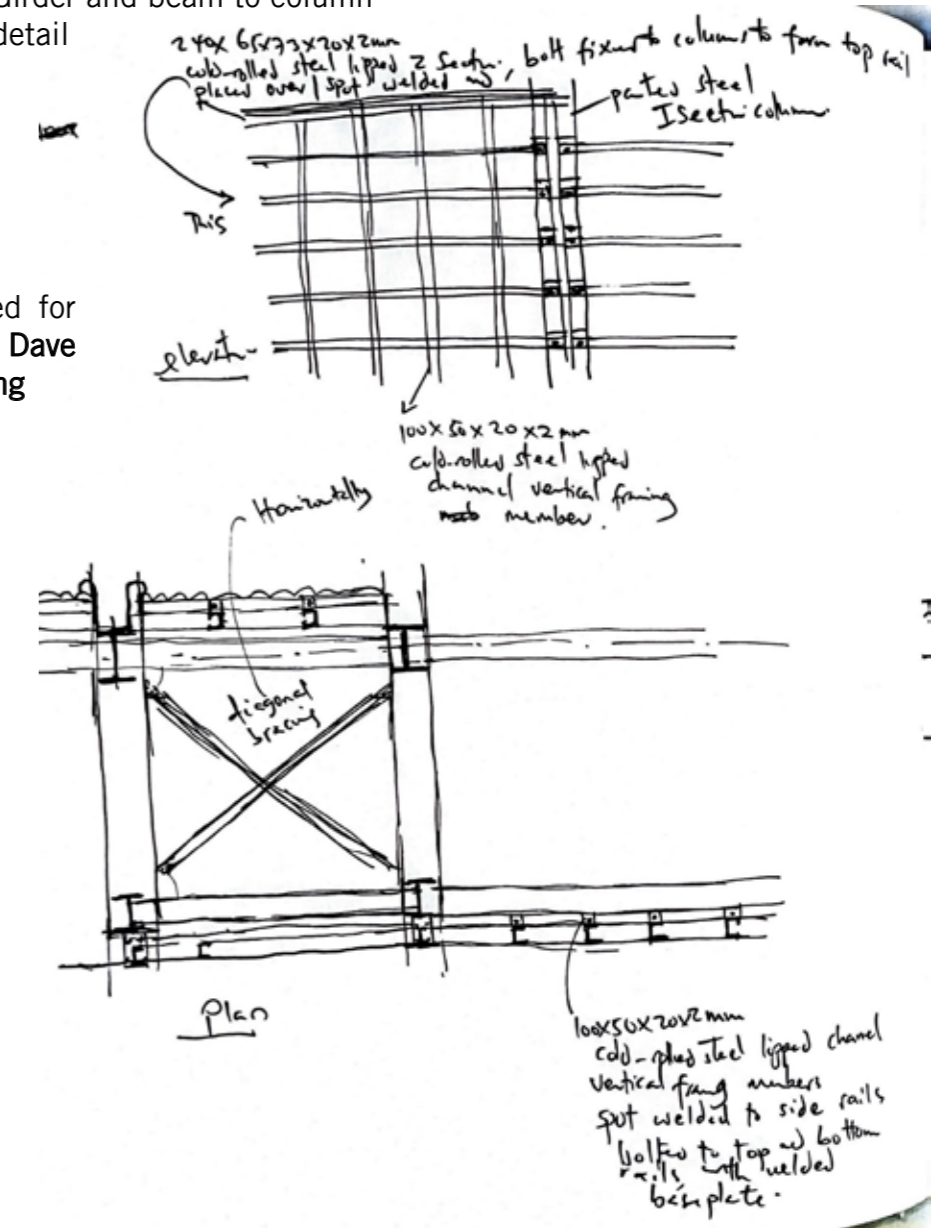 Girder and beam to column
detail
240x 65x73x20x2mm
cold-rolled steel lipped Z Section, bolt fixed to columns to form top rail
placed over / spot welded
painted steel
I Section column
This
ed for
Dave
ng
elevation
100x50x20x2mm
cold-rolled steel lipped
channel vertical framing
member.
Horizontally
diagonal
bracing
Plan
100x50x20x2mm
cold-rolled steel lipped channel
vertical framing members
spot welded to side rails
bolted to top and bottom
rails with welded
baseplate.